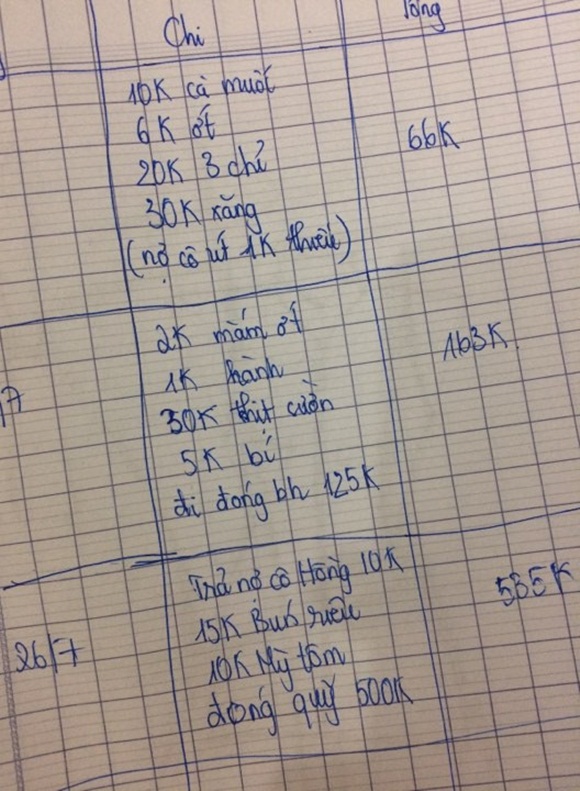 Chi
Tổng
10K cà muối
6K ớt
20K 3 chỉ
30K xăng
(nợ cô út 1K thuốc)
66K
2K mắm ớt
1K hành
30K thịt cuộn
5K bí
đi đóng bh 125K
163K
Trả nợ cô Hồng 10K
15K Bún riêu
10K Mỳ tôm
đóng quỹ 500K
26/7
535K